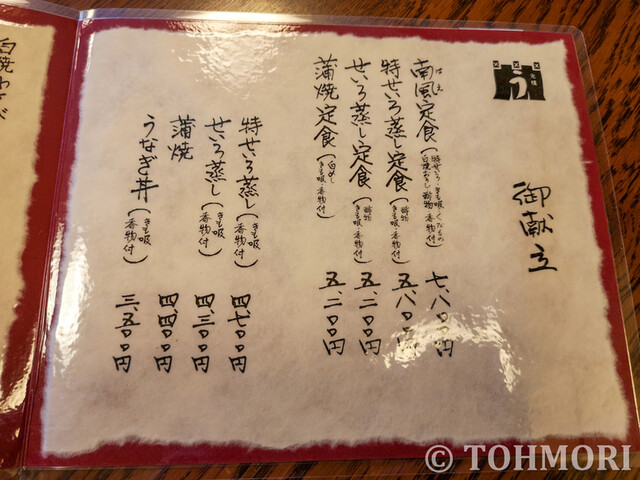 う
御献立
はえ
南風定食(特せいろ・きも吸・くだもの 白焼おろし 酢物 香物付) 七、八〇〇円
特せいろ蒸し定食(酢物 きも吸 香物付) 五、八〇〇円
せいろ蒸し定食(酢物 きも吸 香物付) 五、二〇〇円
蒲焼定食(白めし きも吸 香物付) 五、二〇〇円
特せいろ蒸し(きも吸 香物付) 四、七〇〇円
せいろ蒸し(きも吸 香物付) 四、三〇〇円
蒲焼 四、四〇〇円
うなぎ丼(きも吸 香物付) 三、五〇〇円
白焼わさび
© TOHMORI